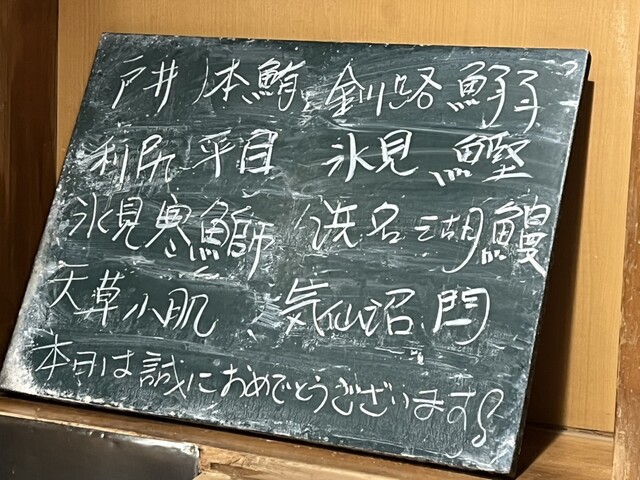 戸井 本鮪 釧路 鰯
利尻 平目 氷見 鰹
氷見寒鰤 浜名湖鰻
天草小肌 気仙沼 閂
本日は誠におめでとうございます